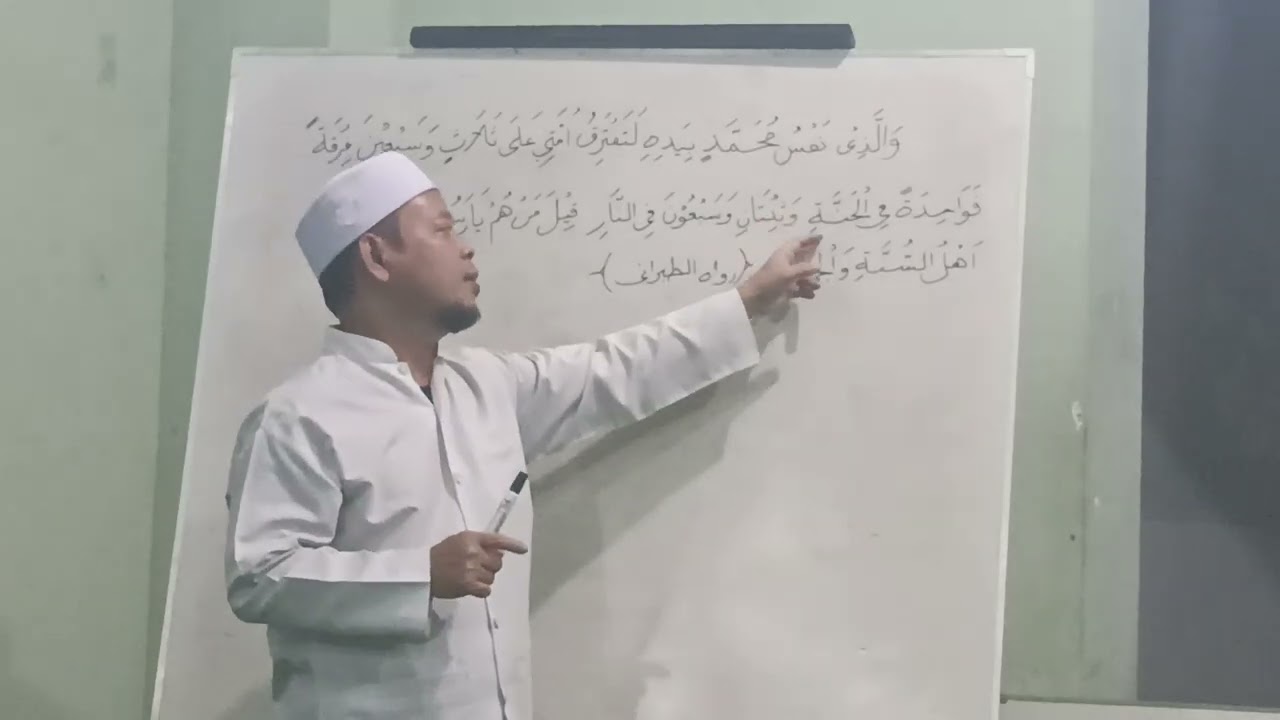 وَالَّذِى نَفْسُ مُحَمَّدٍ بِيَدِهِ لَتَفْتَرِقُ اُمَّتِي عَلَى ثَلَاثٍ وَسَبْعِيْنَ فِرْقَةً
فَوَاحِدَةٌ فِي الْجَنَّةِ وَثِنْتَانِ وَسَبْعُوْنَ فِى النَّارِ قِيْلَ مَنْ هُمْ يَا
اَهْلُ السُّنَّةِ (رواه الطبرانى)